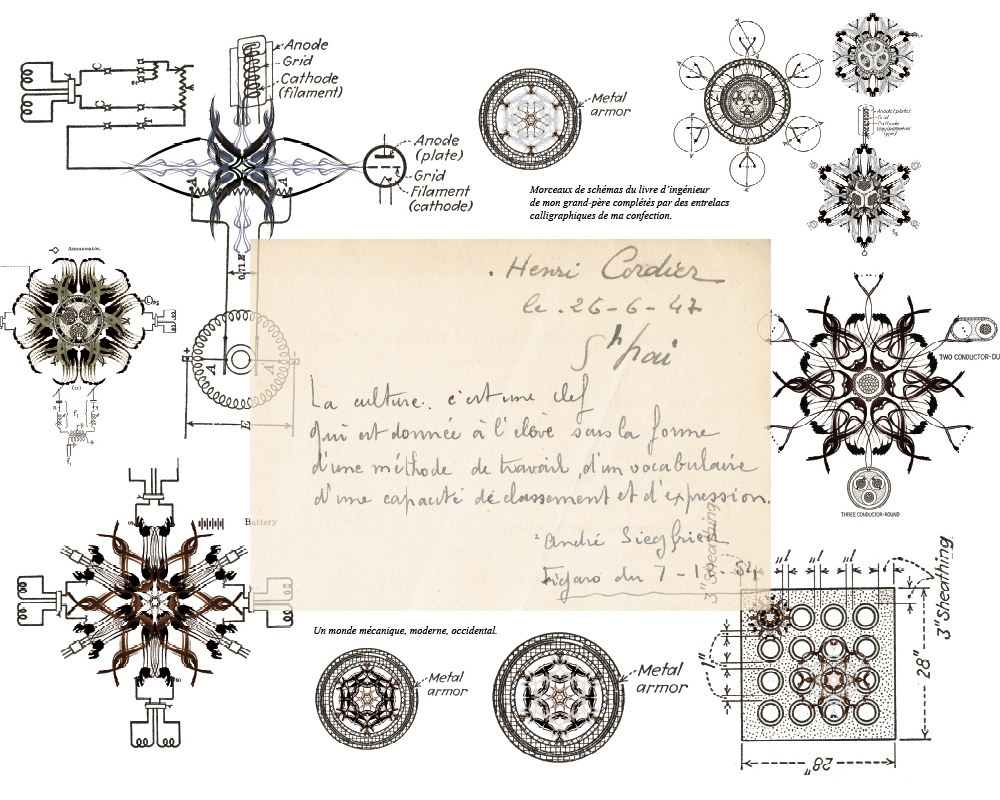 Anode
Grid
Cathode
(filament)
C
C
T
A
A
Anode
(plate)
Grid
Filament
(cathode)
Metal
armor
Morceaux de schémas du livre d'ingénieur
de mon grand-père complétés par des entrelacs
calligraphiques de ma confection.
Anode (plate)
Grid
Cathode
Annunciator.
0,71 E
A
A
E
Henri Cordier
le . 26-6-47
La culture. c'est une clef
qui est donnée à l'élève sous la forme
d'une méthode de travail, d'un vocabulaire
d'une capacité de classement et d'expression.
André Siegfried
Figaro du 7 - 1
TWO CONDUCTOR-DU
THREE CONDUCTOR-ROUND
Battery
Un monde mécanique, moderne, occidental.
Metal
armor
Metal
armor
3" Sheathing
3" Sheathing
1"
28"
28"